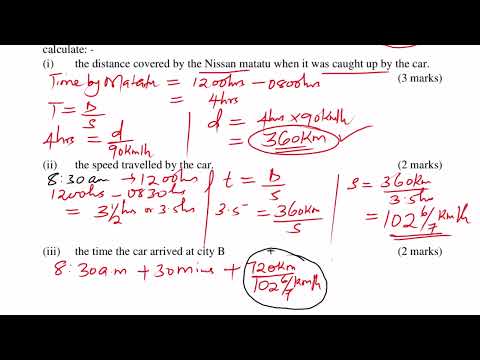 calculate: -
(i) the distance covered by the Nissan matatu when it was caught up by the car.
(3 marks)
Time by Matatu = 1200hrs - 0800hrs
= 4hrs
T = D/S
4hrs = d/90km/h
d = 4hrs x 90km/h
= 360km ✓
(ii) the speed travelled by the car. (2 marks)
8:30am → 1200hrs
1200hrs - 0830hrs
= 3 1/2 hrs or 3.5hrs
t = D/S
3.5 = 360km/S
s = 360km/3.5hrs
= 102 6/7 km/h
(iii) the time the car arrived at city B (2 marks)
8:30am + 30mins + 720km/102 6/7 km/h